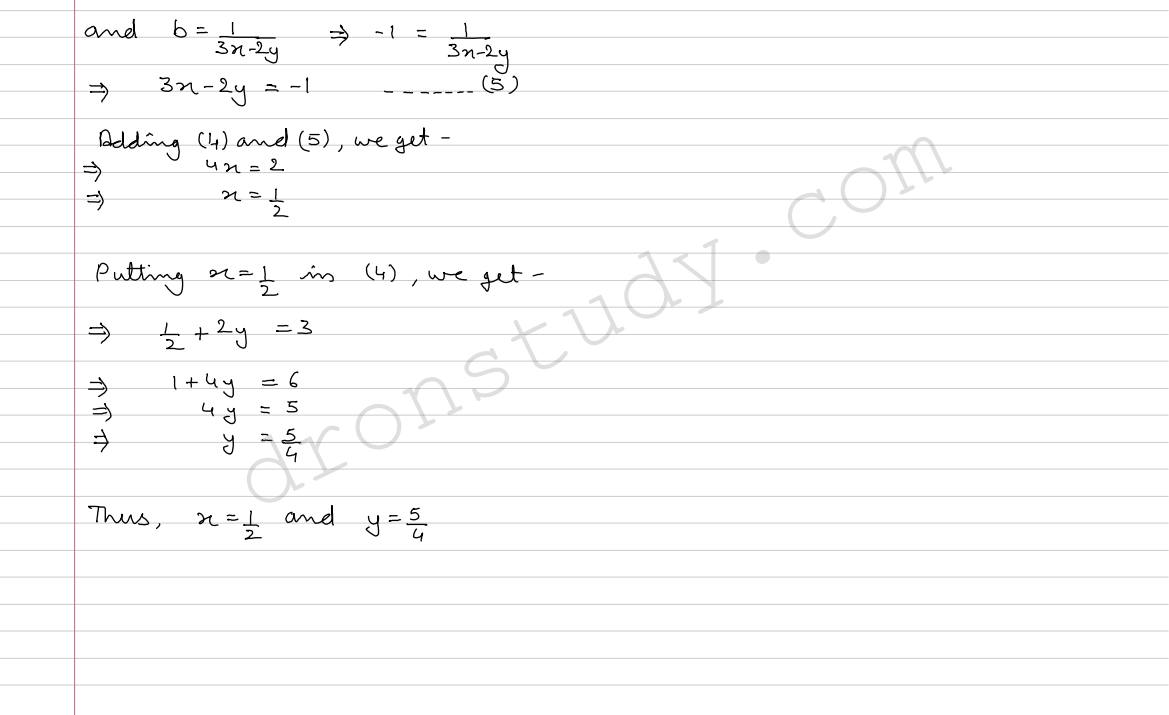 and b = 1/(3x-2y) ⇒ -1 = 1/(3x-2y)
⇒ 3x-2y = -1 -------(5)
Adding (4) and (5), we get -
⇒ 4x = 2
⇒ x = 1/2
Putting x = 1/2 in (4), we get -
⇒ 1/2 + 2y = 3
⇒ 1 + 4y = 6
⇒ 4y = 5
⇒ y = 5/4
Thus, x = 1/2 and y = 5/4
dronstudy.com